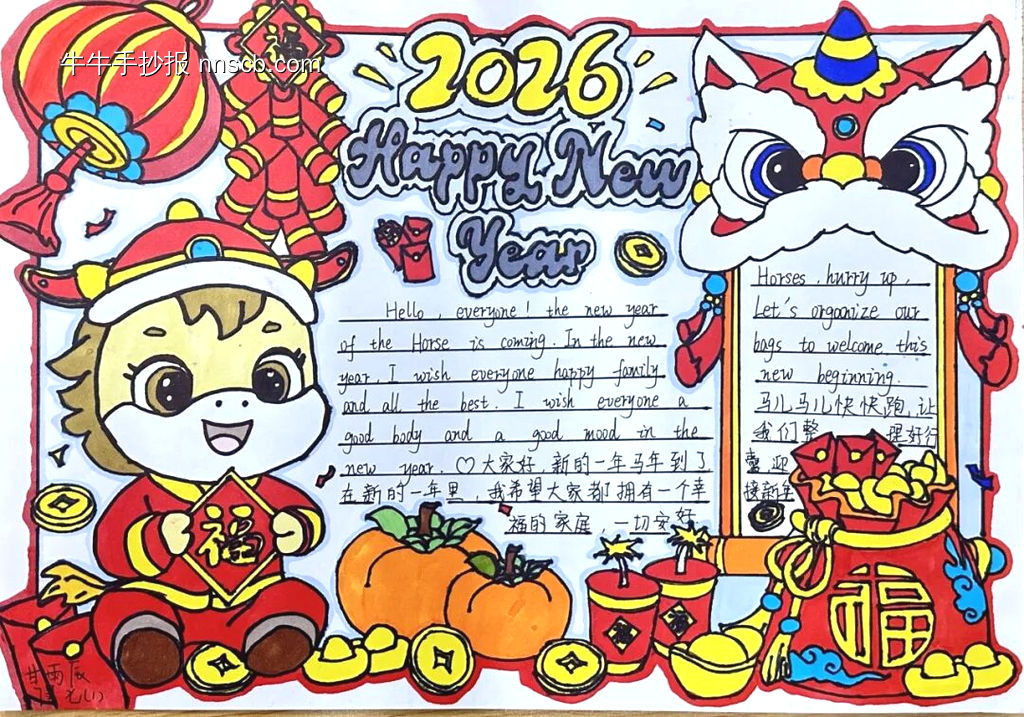 牛牛手抄报 nnscb.com
福
2026
Happy New
Year
Hello, everyone! the new year
of the Horse is coming. In the new
year, I wish everyone happy family
and all the best. I wish everyone a
good body and a good mood in the
new year. ♡大家好,新的一年马年到了
在新的一年里,我希望大家都拥有一个幸
福的家庭,一切安好
Horses, hurry up,
Let's organize our
bags to welcome this
new beginning.
马儿马儿快快跑,让
我们整理好行
囊迎
接新年
福
福
福
福
甘雨辰